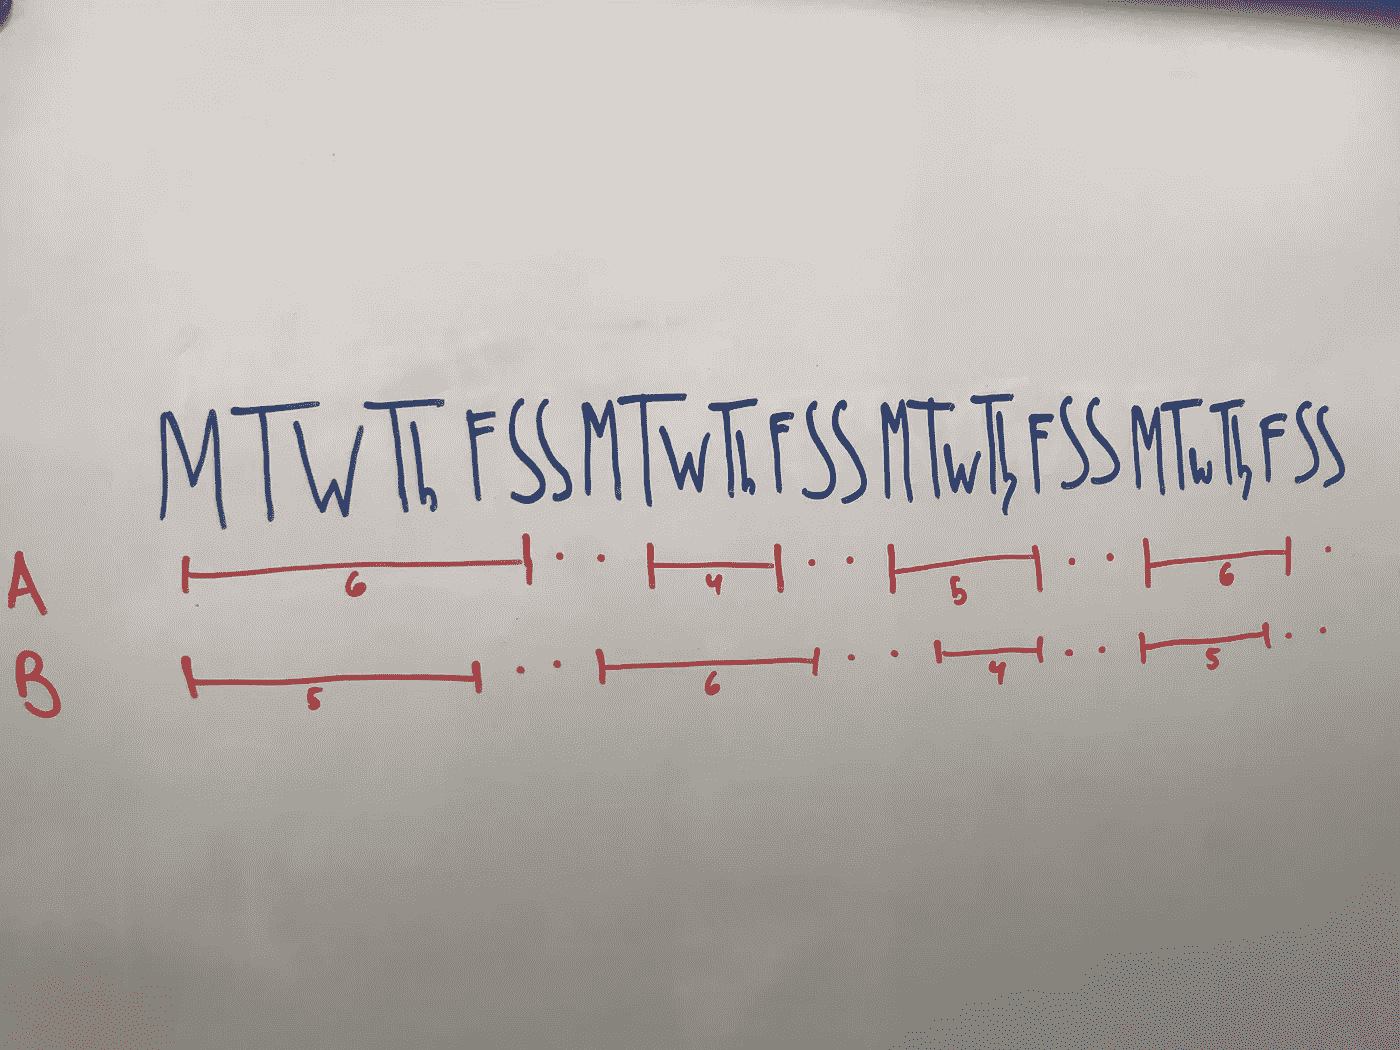 M T W Th F S S M T W Th F S S M T W Th F S S M T W Th F S S
A 6 4 5 6
B 5 6 4 5